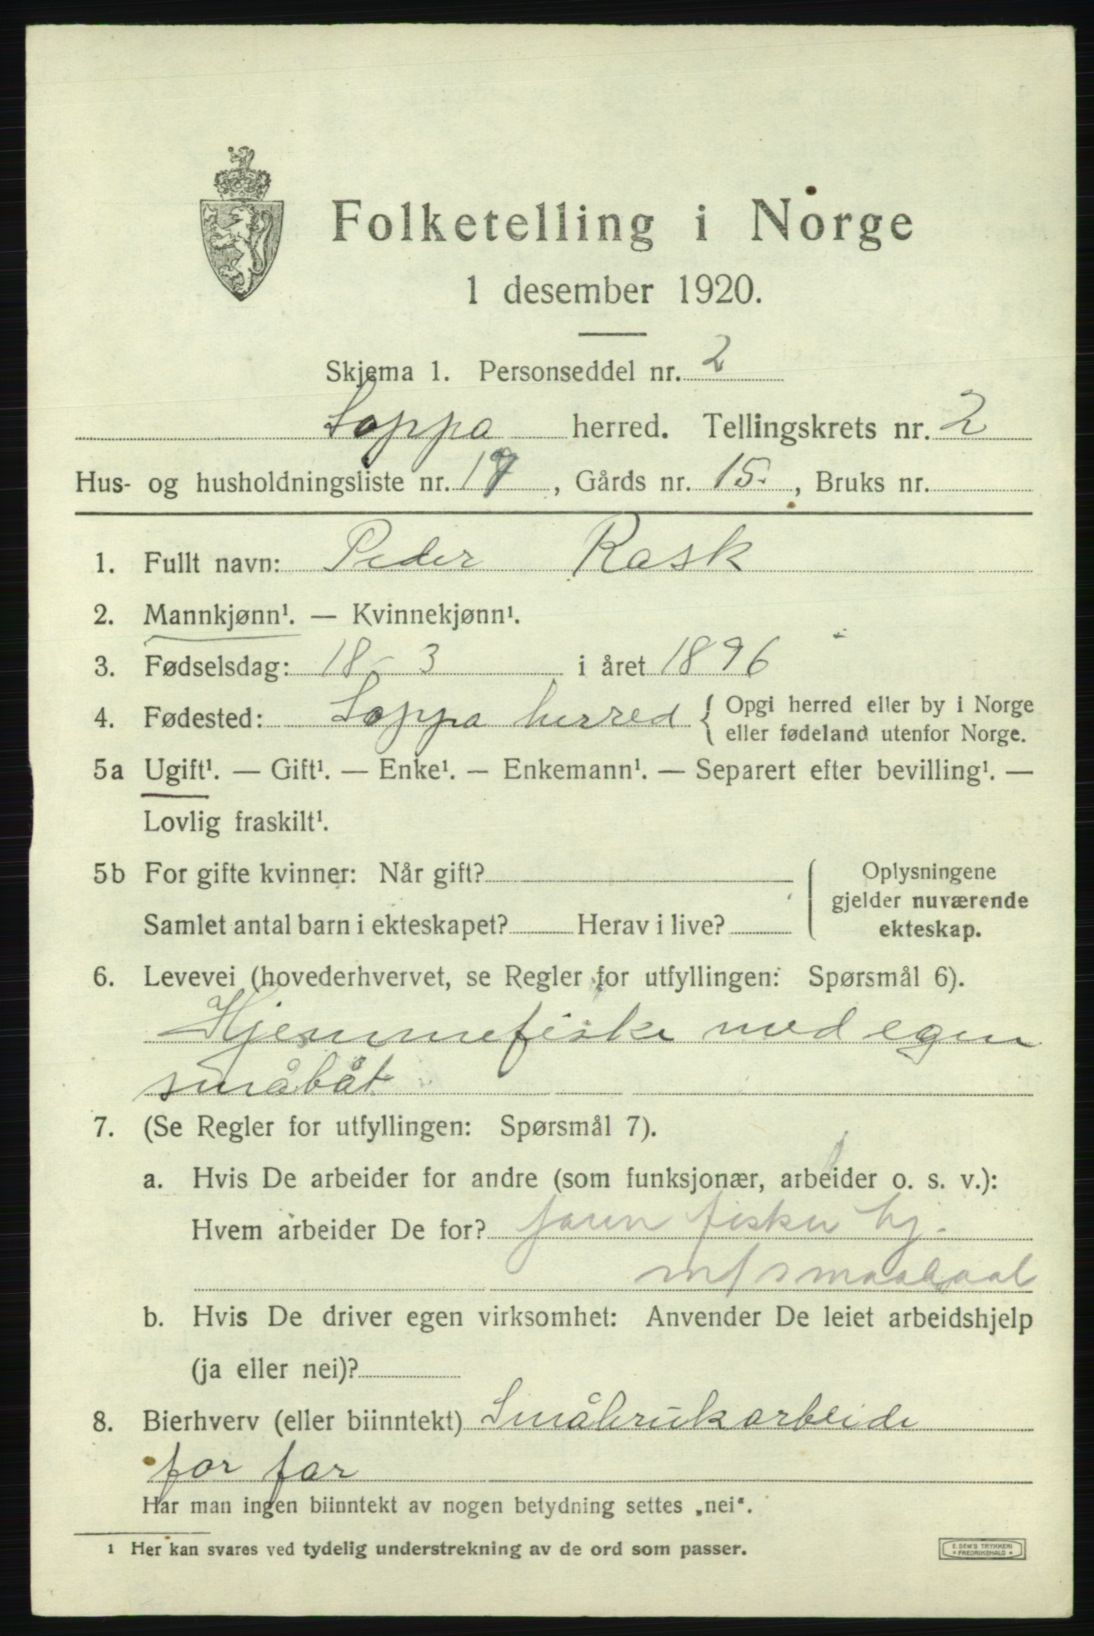 Folketelling i Norge
1 desember 1920.
Skjema 1. Personseddel nr. 2
Loppa herred. Tellingskrets nr. 2
Hus- og husholdningsliste nr. 17, Gårds nr. 15., Bruks nr.
1. Fullt navn: Peder Rask
2. Mannkjønn¹. — Kvinnekjønn¹.
3. Fødselsdag: 18 - 3 i året 1896
4. Fødested: Loppa herred { Opgi herred eller by i Norge
eller fødeland utenfor Norge.
5a Ugift¹. — Gift¹. — Enke¹. — Enkemann¹. — Separert efter bevilling¹. —
Lovlig fraskilt¹.
5b For gifte kvinner: Når gift?
Samlet antal barn i ekteskapet? Herav i live?
Oplysningene
gjelder nuværende
ekteskap.
6. Levevei (hovederhvervet, se Regler for utfyllingen: Spørsmål 6).
Hjemmefiske med egen
småbåt
7. (Se Regler for utfyllingen: Spørsmål 7).
a. Hvis De arbeider for andre (som funksjonær, arbeider o. s. v.):
Hvem arbeider De for? fisker hj.
m/smaabaat
b. Hvis De driver egen virksomhet: Anvender De leiet arbeidshjelp
(ja eller nei)?
8. Bierhverv (eller biinntekt) Småbrukarbeide
for far
Har man ingen biinntekt av nogen betydning settes „nei".
1 Her kan svares ved tydelig understrekning av de ord som passer.
E. SEM'S TRYKKERI
FREDRIKSHALD